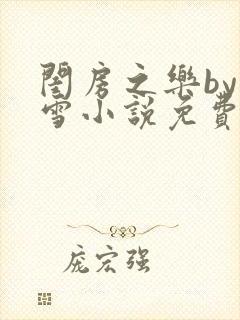 閨房之樂by
雪小說免費
庞宏强